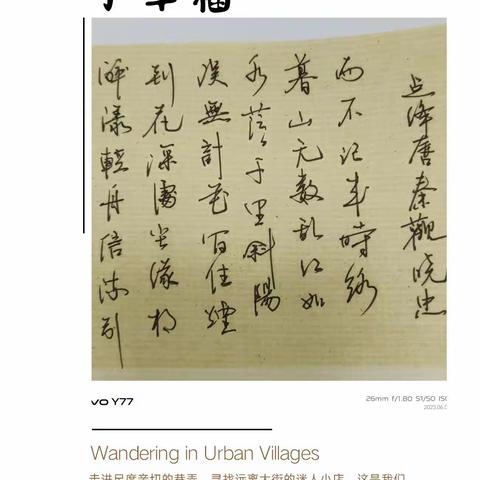 醉漾輕舟信流引
到花深處尘缘相
误無計花间住煙
水茫茫千里斜陽
暮山无数乱红如
雨不记来時路
点绛唇秦觀晓忠
VO Y77
26mm f/1.80 S1/50 ISO
2023.06.
Wandering in Urban Villages
走进尺度亲切的巷弄，寻找远离大街的迷人小店，这是我们